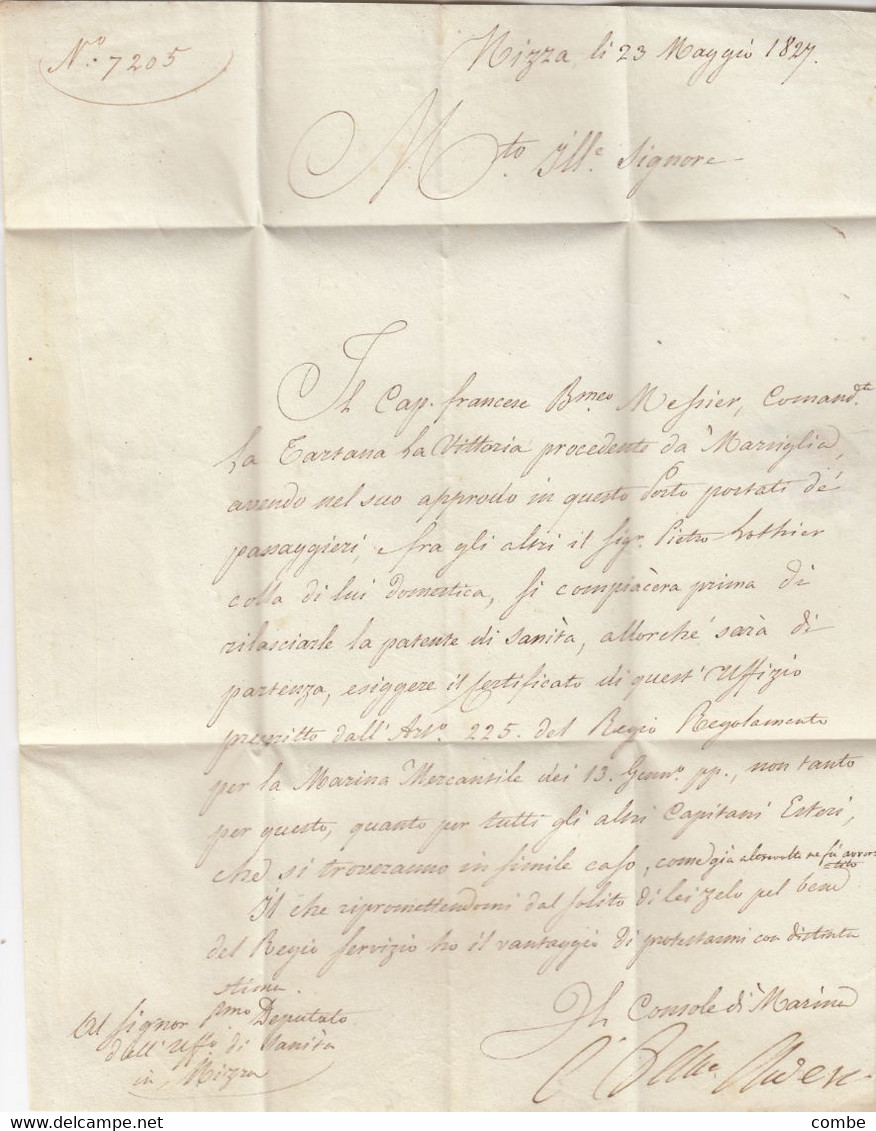 N.º 7205
Nizza, li 23 Maggio 1827.
M.to Ill.e Signore
Il Cap. francese Bmeo Messier, Comand.te
La Tartana La Vittoria procedente da Marsiglia,
avendo nel suo approdo in questo Porto portati de'
passaggieri, fra gli altri il Sig.r Pietro Lothier
colla di lui domestica, si compiacera prima di
rilasciarle la patente di Sanità, allorchè sarà di
partenza, esiggere il certificato di quest' Uffizio
prescritto dall' Art.º 225. del Regio Regolamento
per la Marina Mercantile dei 13. Genn.º pp., non tanto
per questo, quanto per tutti gli altri Capitani Esteri,
che si troveranno in simile caso, come già altrevolte ne fù avver
tito
Il che ripromettendomi dal solito di lei zelo pel bene
del Regio Servizio ho il vantaggio di protestarmi con distinta
stima.
Il Console di Marina
Al Signor Pmo Deputato
dell' Uffo di Sanità
in Nizza
combe